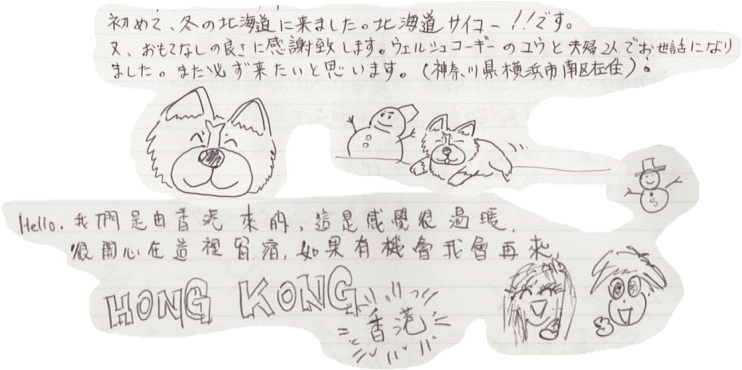 初めて、冬の北海道に来ました。北海道サイコー!!です。
又、おもてなしの良さに感謝致します。ウェルシュコーギーのユウと夫婦2人でお世話になり
ました。また必ず来たいと思います。(神奈川県横浜市南区在住)
Hello. 我們是由香港來的、這是感覺很溫暖、
很開心在這裡留宿,如果有機會我會再來
HONG KONG
香港